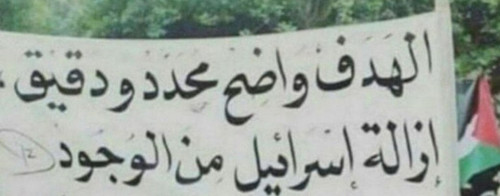 الهدف واضح محدد ودقيق ،
إزالة إسرائيل من الوجود